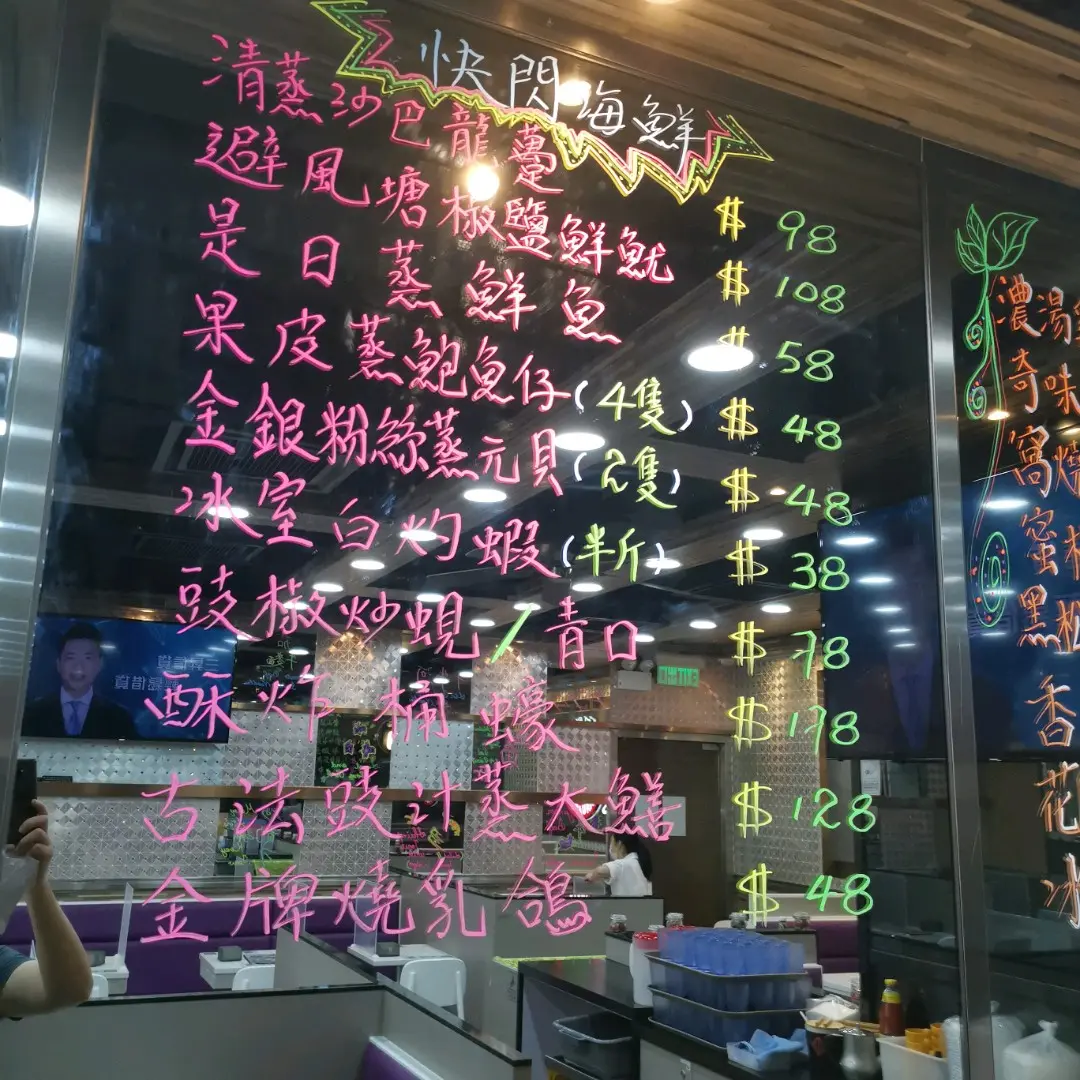 快閃海鮮
清蒸沙巴龍躉 $98
避風塘椒鹽鮮魷 $108
是日蒸鮮魚 $58
果皮蒸鮑魚仔(4隻) $48
金銀粉絲蒸元貝(2隻) $48
冰室白灼蝦(半斤) $38
豉椒炒蜆/青口 $78
酥炸桶蠔 $178
古法豉汁蒸大鱔 $128
金牌燒乳鴿 $48
濃湯
奇味
窩燒
蜜
黑松
香
花
冰